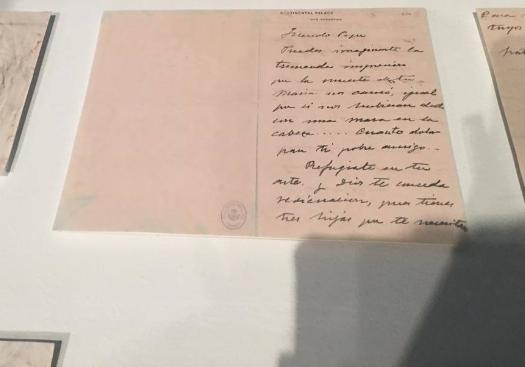 CONTINENTAL PALACE
SAN SEBASTIAN
Querido Pepe
Puedes imaginarte la
tremenda impresion
que la muerte de tu
Maria nos causó, igual
que si nos hubieran dado
con una maza en la
cabeza..... Cuanto dolor
para ti pobre amigo..
Refugiate en tu
arte. y Dios te conceda
resignacion, pues tienes
tres hijas que te necesitan
Para
tuyos